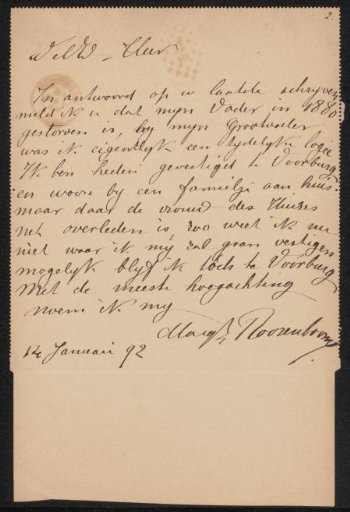 2.
WelEd. Heer
In antwoord op uw laatste schrijven
meld ik u dat mijn Vader in 1880
gestorven is, bij mijn Grootvader
was ik eigentlijk een tijdelijke logée
Ik ben heden gevestigd te Voorburg
en woon bij een familje aan huis
maar daar de vrouw des Huizes
nu overleden is, zoo weet ik nu
niet waar ik mij zal gaan vestigen
mogelijk blijf ik toch te Voorburg
Met de meeste hoogachting
noem ik mij
Marg. Roosenboom
14 Januari 92